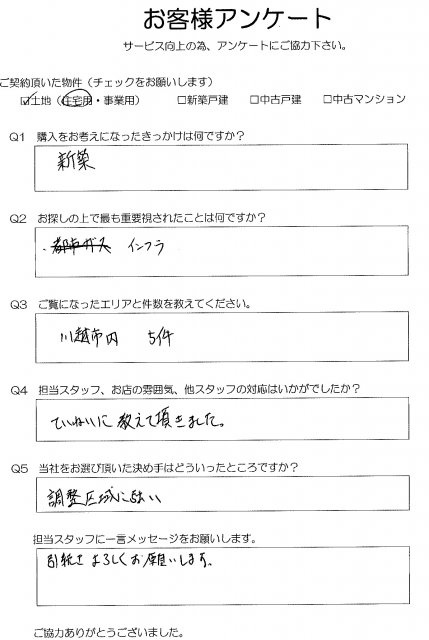 お客様アンケート
サービス向上の為、アンケートにご協力下さい。
ご契約頂いた物件（チェックをお願いします）
☑土地（住宅用・事業用） □新築戸建 □中古戸建 □中古マンション
Q1 購入をお考えになったきっかけは何ですか？
新築
Q2 お探しの上で最も重要視されたことは何ですか？
・都市ガス インフラ
Q3 ご覧になったエリアと件数を教えてください。
川越市内 5件
Q4 担当スタッフ、お店の雰囲気、他スタッフの対応はいかがでしたか？
ていねいに教えて頂きました。
Q5 当社をお選び頂いた決め手はどういったところですか？
調整区域に強い
担当スタッフに一言メッセージをお願いします。
引続きよろしくお願いします。
ご協力ありがとうございました。